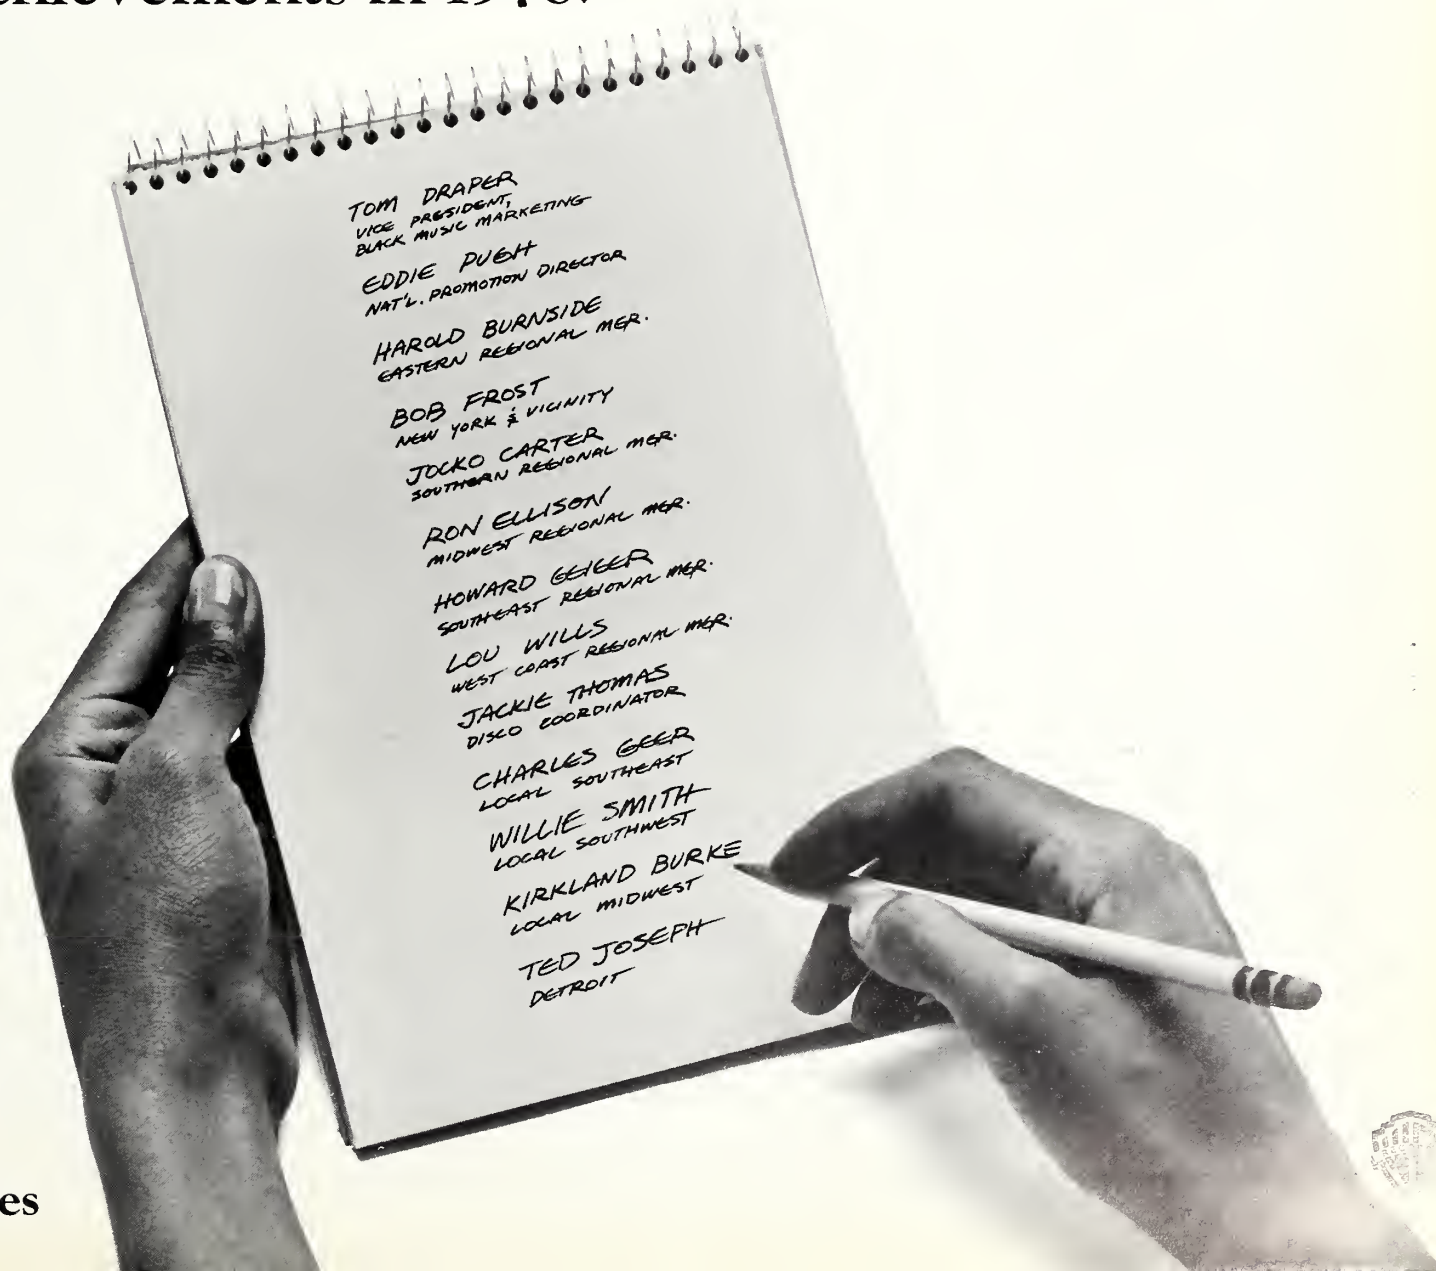 in
TOM DRAPER
VICE PRESIDENT,
BLACK MUSIC MARKETING
EDDIE PUGH
NAT'L. PROMOTION DIRECTOR
HAROLD BURNSIDE
EASTERN REGIONAL MGR.
BOB FROST
NEW YORK & VICINITY
JOCKO CARTER
SOUTHERN REGIONAL MGR.
RON ELLISON
MIDWEST REGIONAL MGR.
HOWARD GEIGER
SOUTHEAST REGIONAL MGR.
LOU WILLS
WEST COAST REGIONAL MGR.
JACKIE THOMAS
DISCO COORDINATOR
CHARLES GEER
LOCAL SOUTHEAST
WILLIE SMITH
LOCAL SOUTHWEST
KIRKLAND BURKE
LOCAL MIDWEST
TED JOSEPH
DETROIT
es